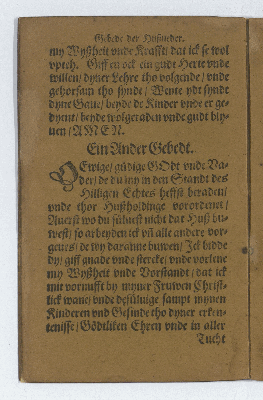 Gebede der Hußueder.
my Wyßheit vnde Krafft/ dat ick se wol
vpteh. Giff en ock ein gudt Herte vnde
willen/ dyner Lehre tho volgende/ vnde
gehorsam tho synde/ Wente ydt synde
dyne Gaue/ beyde de Kinder vnde er ge-
dyent/ beyde wolgeraden vnde gudt bly-
uen/ AMEN.
Ein Ander Gebedt.
O Ewige/ güdige GOdt vnde Va-
der/ de du my in den Standt des
Hilligen Echtes heffst beraden/
vnde thor Hußholdinge vorordenet/
Auerst wo du süluest nicht dat Huß bu-
west/ so arbeyden ick vñ alle andere vor-
geues/ de dy daranne buwen/ Jck bidde
dy/ giff gnade vnde stercke/ vnde vorlene
my Wyßheit vnde Vorstandt/ dat ick
mit vornufft by myner Fruwen Christ-
lick wane/ vnde desüluige sampt mynen
Kinderen vnd Gesinde tho dyner erken-
tenisse/ Gödtliken Ehren vnde in aller
Tucht